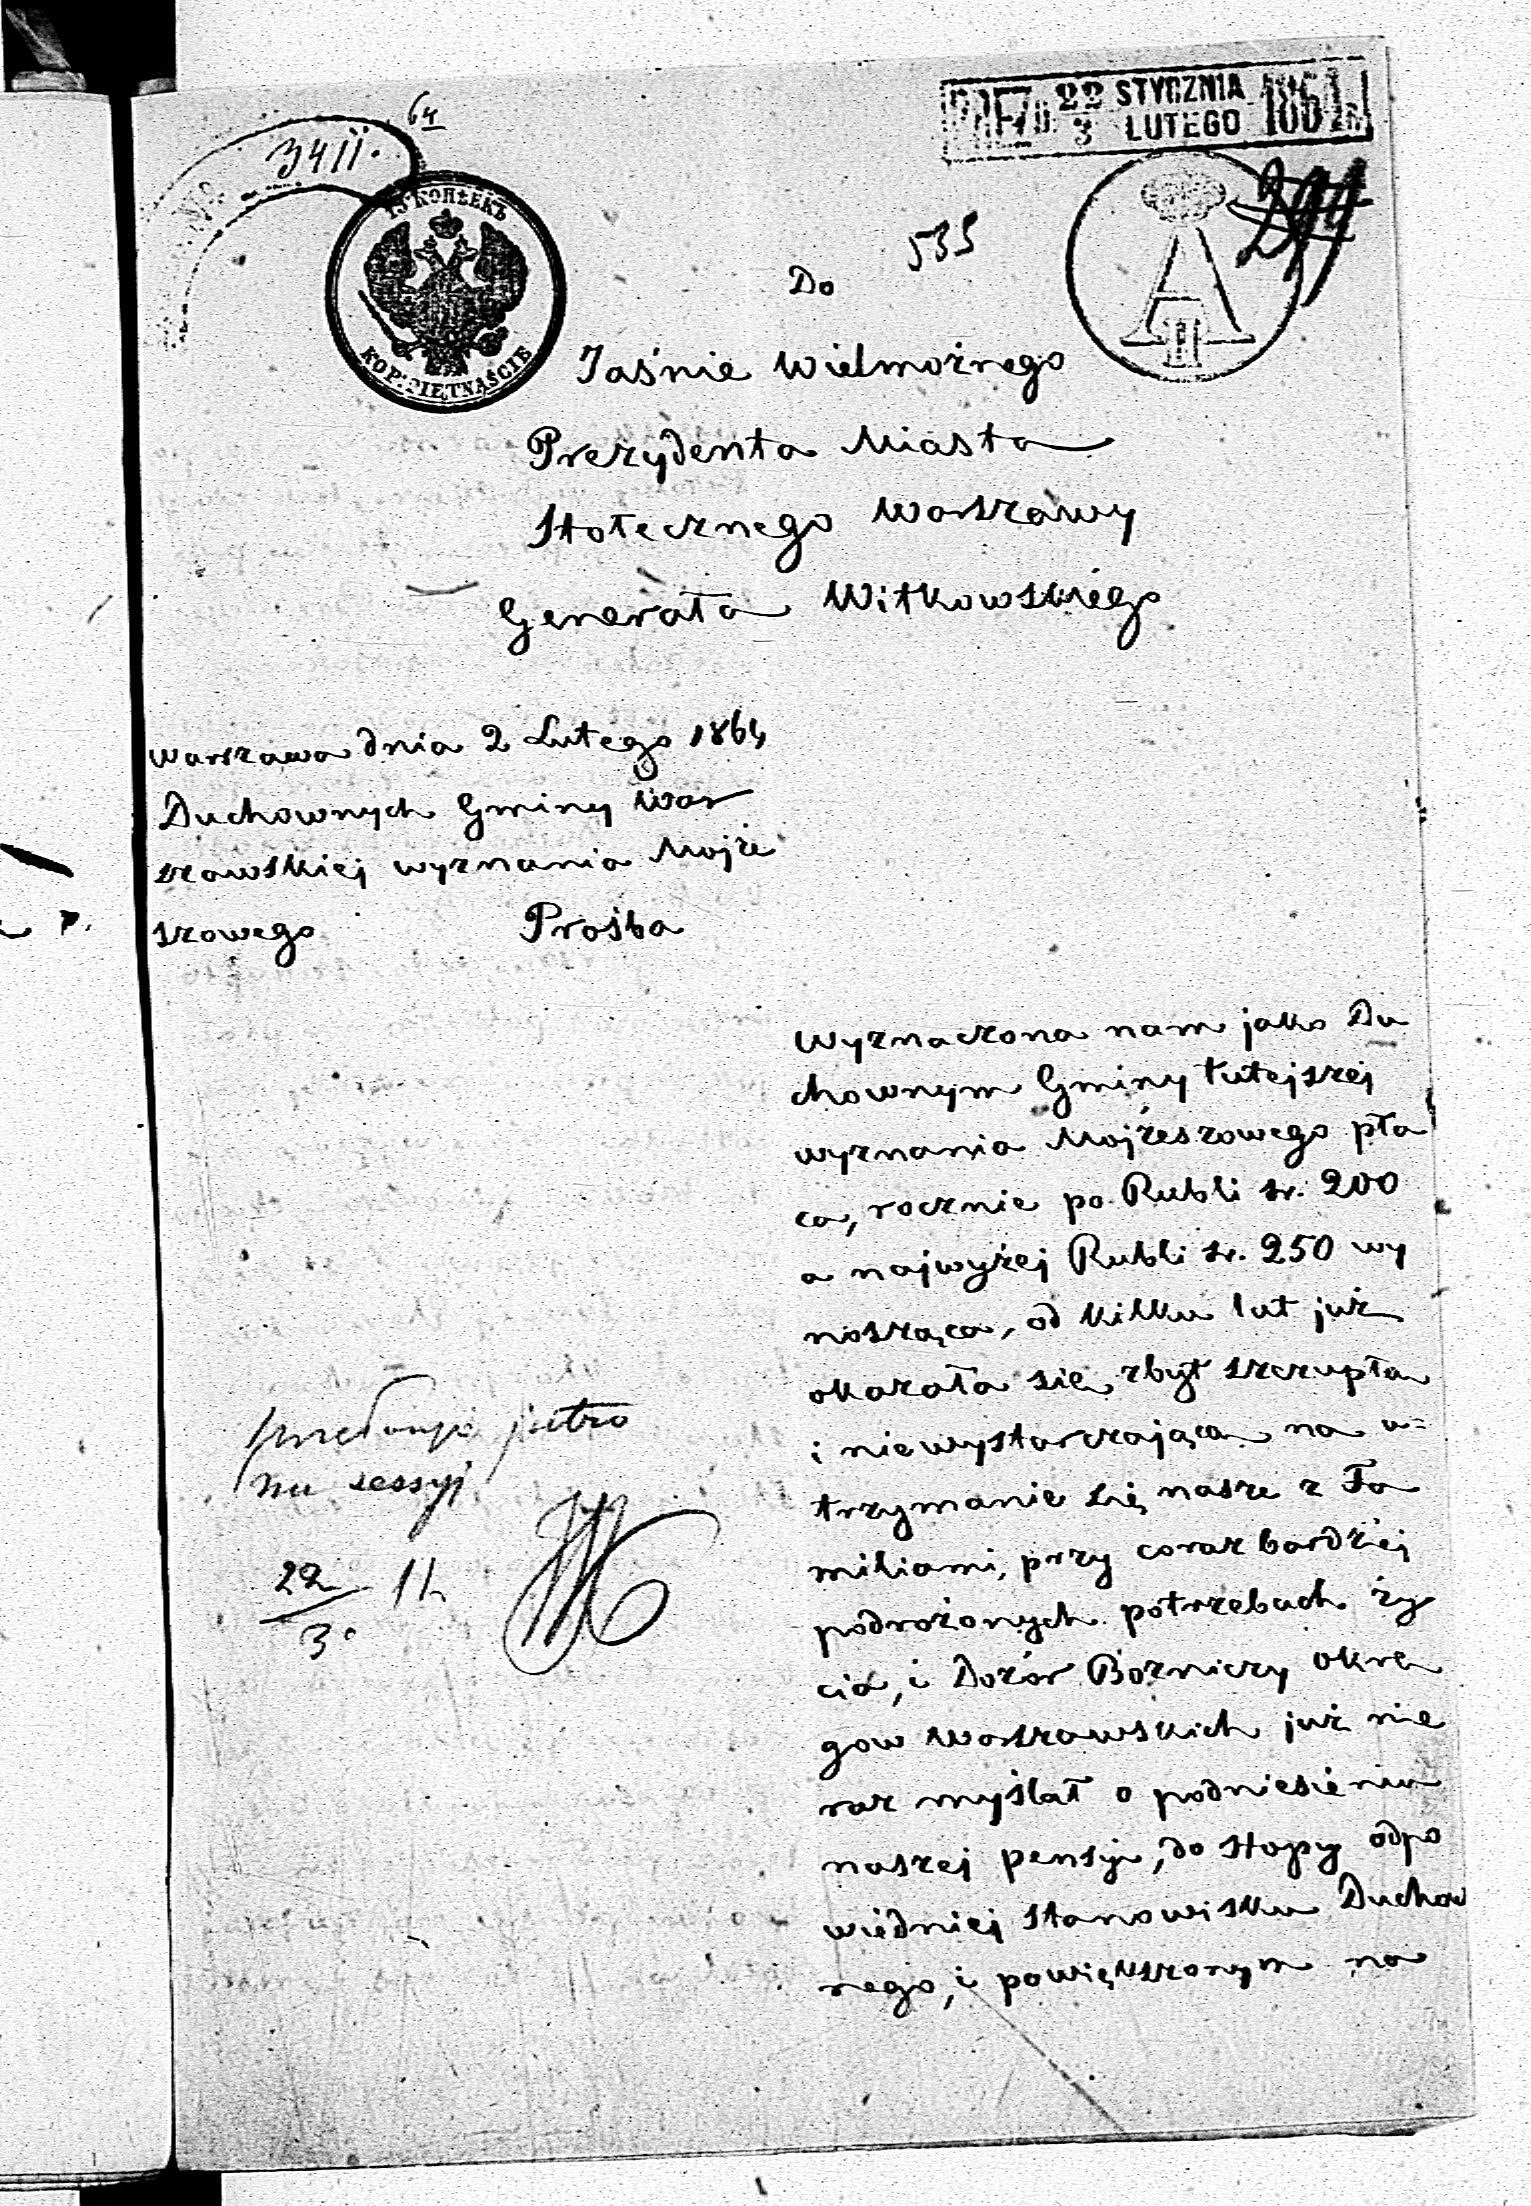 64
3411.
22 STYCZNIA 1864
3 LUTEGO
15 КОПѢЕКЪ
KOP. PIĘTNAŚCIE
A
II
Do
535
Jaśnie Wielmożnego
Prezydenta Miasta
Stołecznego Warszawy
Generała Witkowskiego
Warszawa dnia 2 Lutego 1864
Duchownych Gminy War
szawskiej wyznania Mojże
szowego Prośba
Wyznaczona nam jako Du
chownym Gminy tutejszej
wyznania Mojżeszowego pła
ca, rocznie po Rubli sr. 200
a najwyżej Rubli sr. 250 wy
nosząca, od kilku lat już
okazała się zbyt szczupła
i niewystarczająca na u=
trzymanie się nasze z Fa
miliami, przy coraz bardziej
podrożonych potrzebach ży
cia, i Dozór Bożniczy Okrę
gow Warszawskich już nie
raz myślał o podniesieniu
naszej pensyi, do stopy odpo
wiedniej stanowisku Duchow
nego, i powiększonym na
jutro
na sessyi
22
3